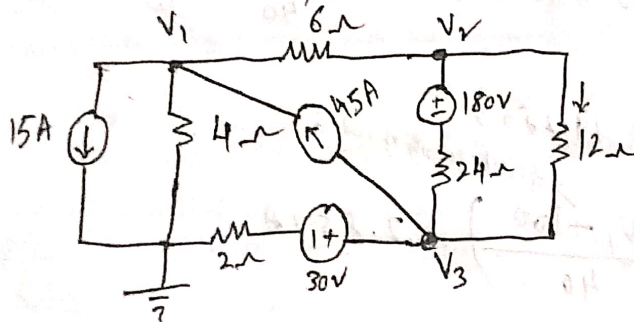 V1 6Ω V2
15A 4Ω 45A ± 180V 12Ω
24Ω
2Ω - + 30V V3